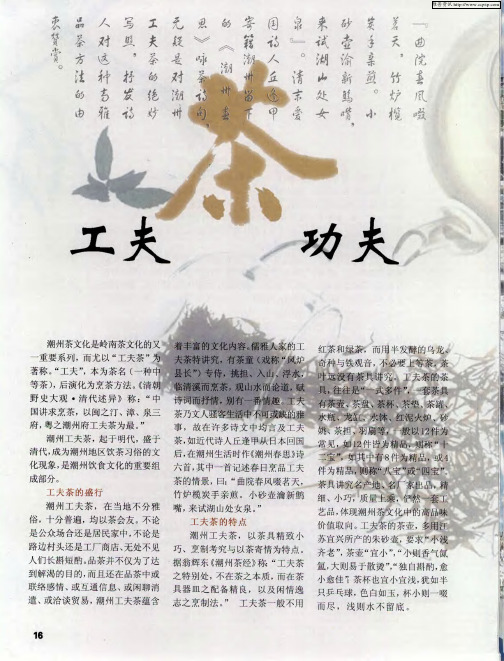 维普资讯 http://www.cqvip.com
“曲院春风啜
茗天,竹炉榄
炭手亲煎。小
砂壶瀹新鹪嘴,
来试湖山处女
泉”。清末爱
国诗人丘逢甲
寄籍潮州留下
的《潮州春
思》咏茶诗句,
无疑是对潮州
工夫茶的绝妙
写照,抒发诗
人对这种高雅
品茶方法的由
衷赞赏。
茶
工夫 功夫
潮州茶文化是岭南茶文化的又
一重要系列,而尤以“工夫茶”为
著称。“工夫”,本为茶名(一种中
等茶),后演化为烹茶方法。《清朝
野史大观·清代述异》称:“中
国讲求烹茶,以闽之汀、漳、泉三
府,粤之潮州府工夫茶为最。”
潮州工夫茶,起于明代,盛于
清代,成为潮州地区饮茶习俗的文
化现象,是潮州饮食文化的重要组
成部分。
工夫茶的盛行
潮州工夫茶,在当地不分雅
俗,十分普遍,均以茶会友。不论
是公众场合还是居民家中,不论是
路边村头还是工厂商店、无处不见
人们长斟短酌。品茶并不仅为了达
到解渴的目的,而且还在品茶中或
联络感情、或互通信息、或闲聊消
遣、或洽谈贸易,潮州工夫茶蕴含
着丰富的文化内容。儒雅人家的工
夫茶特讲究,有茶童(戏称“风炉
县长”)专侍,挑担、入山、浮水,
临清溪而烹茶,观山水而论道,赋
诗词而抒情,别有一番情趣。工夫
茶乃文人骚客生活中不可或缺的雅
事,故在许多诗文中均言及工夫
茶,如近代诗人丘逢甲从日本回国
后,在潮州生活时作《潮州春思》诗
六首,其中一首记述春日烹品工夫
茶的情景,曰:“曲院春风啜茗天,
竹炉榄炭手亲煎,小砂壶瀹新鹪
嘴,来试湖山处女泉。”
工夫茶的特点
潮州工夫茶,以茶具精致小
巧、烹制考究与以茶寄情为特点。
据翁辉东《潮州茶经》称:“工夫茶
之特别处,不在茶之本质,而在茶
具器皿之配备精良,以及闲情逸
志之烹制法。” 工夫茶一般不用
红茶和绿茶,而用半发酵的乌龙、
奇种与铁观音,不必要上等茶。茶
叶远没有茶具讲究。工夫茶的茶
具,往往是“一式多件”,一套茶具
有茶壶、茶盘、茶杯、茶垫、茶罐、
水瓶、龙缸、水钵、红泥火炉、砂
姚、茶担、羽扇等,一般以12件为
常见,如12件皆为精品,则称“十
二宝”,如其中有8件为精品,或4
件为精品,则称“八宝”或“四宝”。
茶具讲究名产地、名厂家出品,精
细、小巧,质量上乘,俨然一套工
艺品,体现潮州茶文化中的高品味
价值取向。工夫茶的茶壶,多用江
苏宜兴所产的朱砂壶,要求“小浅
齐老”,茶壶“宜小”,“小则香气氤
氲,大则易于散烫”,“独自斟酌,愈
小愈佳”;茶杯也宜小宜浅,犹如半
只乒乓球,色白如玉,杯小则一啜
而尽,浅则水不留底。
16